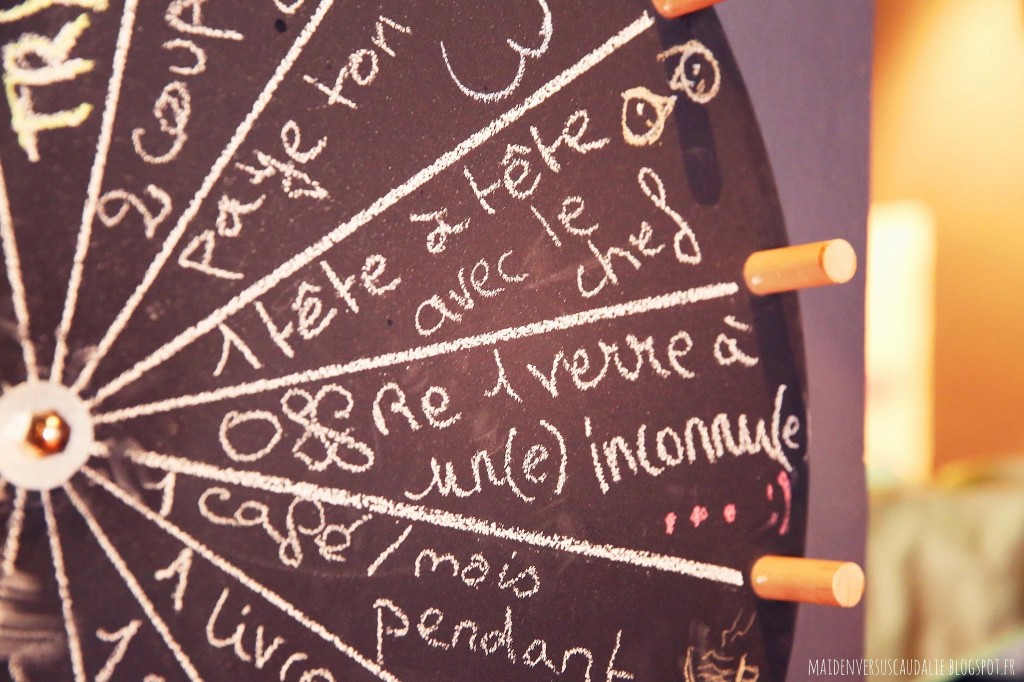 TRY
2 coup
Paye ton
1 tête à tête
avec le
chef
Offre 1 verre à
un(e) inconnu(e
1 café / mois
pendant
1 livre
1
MAIDENVERSUSCAUDALIE.BLOGSPOT.FR